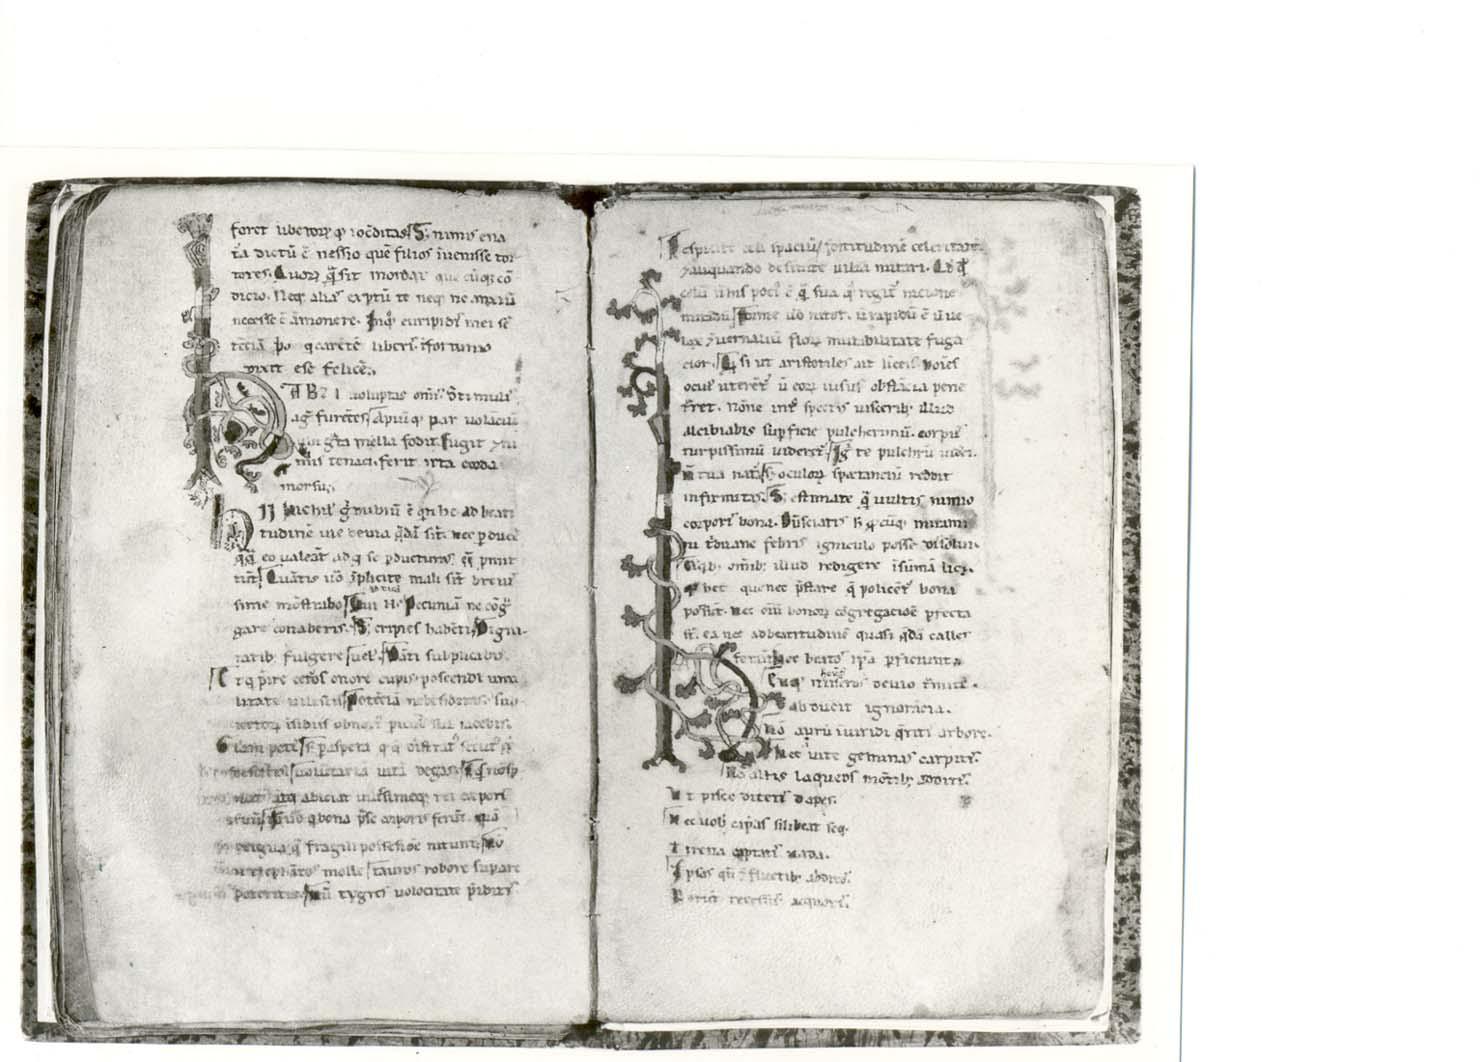 foret liberorũ q; iocũditas. S; nimis e na
tã dictũ ẽ nescio quẽ filios ĩuenisse tor
tores. Quorũ q̃ sit mordax que cũq; cõ
dicio. Neq; alias exptũ te neq; nc̃ anxiũ
necesse ẽ ãmonere. In q̊ euripidis mei sẽ
tẽciã ꝓbo q carẽtẽ liberis ĩfortunio
dixit esse felicẽ.
HABet voluptas omĩs. Stimulis
agit furẽtes. Apiũ q; par volãciũ
ubi grata mella fodit. Fugit et ni
mis tenaci. ferit icta corda
morsu.
Nichil igr̃ dubiũ ẽ qn he ad beati
tudinẽ uie deuia q̃dã sĩt. nec pduce
q̃q̃ eo valeãt ad q̊ se pducturas eẽ pmit
tũt. Quãtis uõ ĩplicite malis sĩt breuis
sime mõstrabo. Pecuniã ne cõg̃
gare conaberis. S; eripies habẽti. Digni
tatib; fulgere uelis. Dãti suplicabis.
Et q pire ceteros onore cupis. poscendi umi
litate uilescis. Potẽciã ne desideras. sub
iectorũ isidiis obnoxĩ piculis subiacebis.
Gl̃iam petis. s; p aspera q q̃ distractus secur̃ eẽ
desistis. uoluptariã uitã degas. S; q̃s nõ sp
nat atq; abiciat uilissimeq; rei corporis
seruũ. Iã uõ q bona p̃ se corporis ferũt. quã
exigua q̃ fragili possessiõe nitunt̃. Nũ
eni elephãtos mole. tauros robore supare
poteritis. Nũ tygres uelocitate p̃ibitis.
Respicite celi spaciũ. firmitudinẽ celeritatẽ
et aliquando desinite uilia mirari. Qd̃ q̃
celũ nõ his poci̊ ẽ q̃ sua q̃ regit̃ racione
mirãdũ. Forme uõ nitor. ut rapidũ ẽ ut ue
lox et uernaliũ florũ mutabilitate fuga
cior. Q̊ si ut aristotiles ait linceis hoĩes
oculis uterẽt̃ ut eorũ uisus obstãcia pene
t̃ret. Nõne int̃ spectis uisceribus illud
alcibiadis supficie pulcherimũ. corpus
turpissimũ uideret̃. Igr̃ te pulchrũ uideri.
nõ tua natã. s; oculorũ spectanciũ reddit
infirmitas. S; estimate q̃ uultis nimio
corporis bona. Dũ sciatis h̃ q̊ cũq; mirami
ni tĩduane febris igniculo posse dissolui.
Ex q̊b; omĩb; illud redigere ĩ sũmã licz.
q̊ hec que nec p̃stare q̃ policent̃ bona
possũt. nec omĩ bonorũ cõgregacioẽ pfecta
sũt. ea nec ad beatitudinẽ quasi q̃dã calles
ferũt. Nec beatos ipsa pficiunt.
Euq; miseros deuio t̃mite.
abducit ignorãcia.
Nõ aurũ ĩ uiridi q̃ritis arbore.
Nec uite gemmas carpitis.
Nõ altis laqueos mõtib; abditis.
Ut pisce ditetis dapes.
Nec uob̃ cap̃as si libeat seq.
Tirrena captatis uada.
Ipsos qñ ĩ fluctib; abditos.
Norũt recessus aequoris.